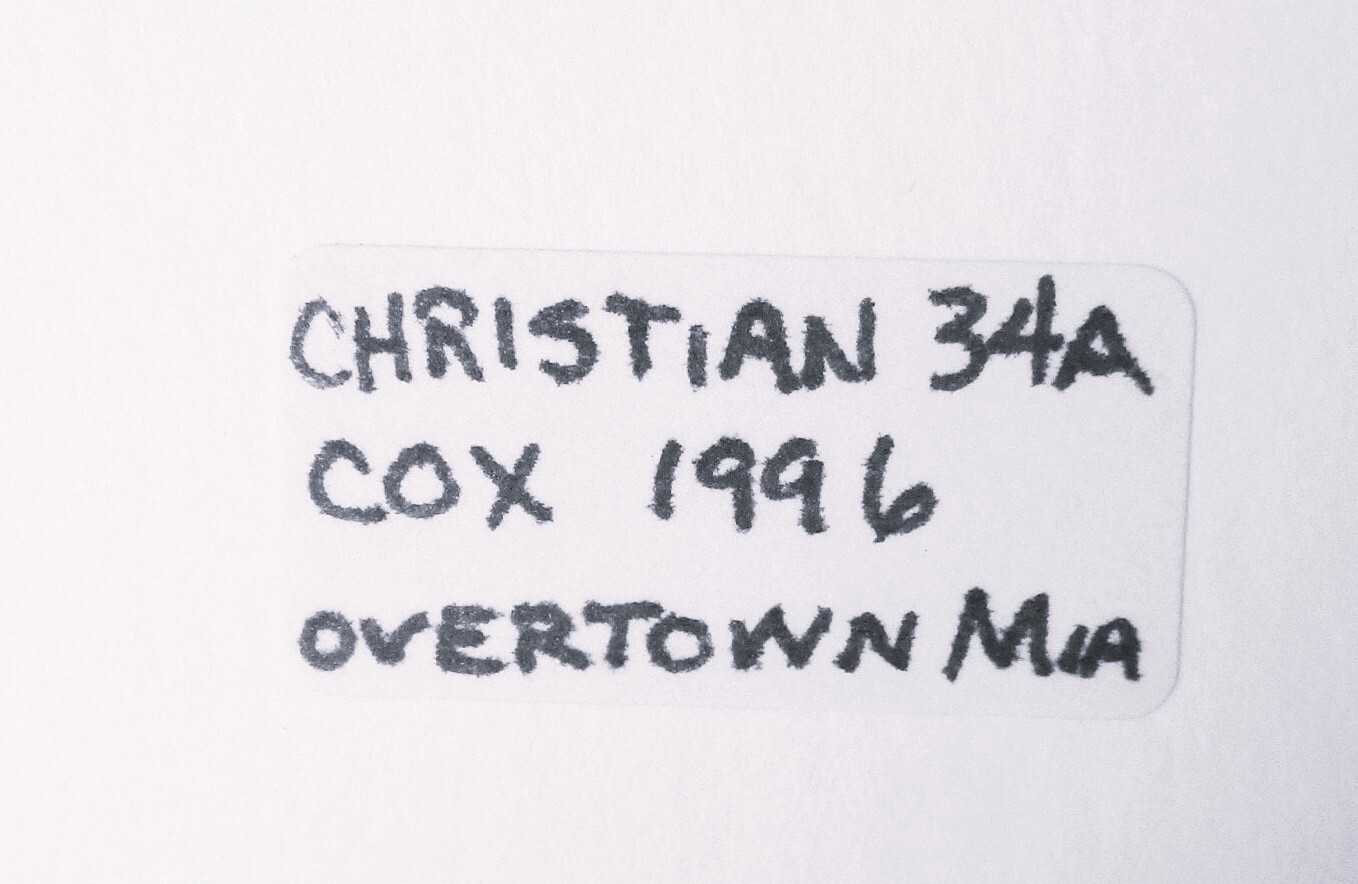 CHRISTIAN 34A
COX 1996
OVERTOWN MIA